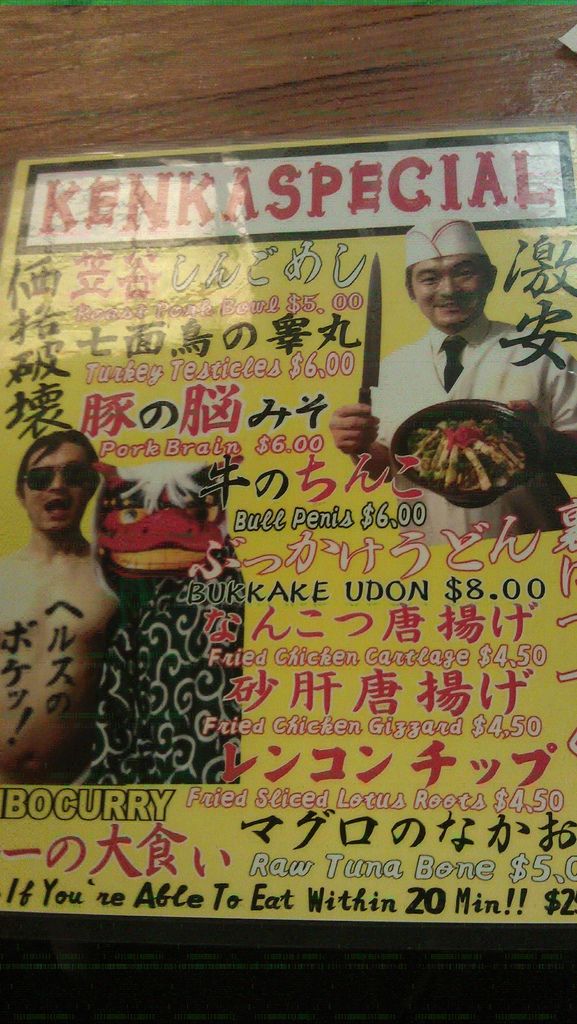 KENKASPECIAL
価格破壊
激安
笠谷しんごめし
Roast Pork Bowl $5.00
七面鳥の睾丸
Turkey Testicles $6.00
豚の脳みそ
Pork Brain $6.00
牛のちんこ
Bull Penis $6.00
ぶっかけうどん
BUKKAKE UDON $8.00
なんこつ唐揚げ
Fried Chicken Cartlage $4,50
砂肝唐揚げ
Fried Chicken Gizzard $4,50
レンコンチップ
Fried Sliced Lotus Roots $4,50
ヘルスの
ボケッ!
マグロのなかお
Raw Tuna Bone $5.0
MBOCURRY
ーの大食い
If You're Able To Eat Within 20 Min!! $2